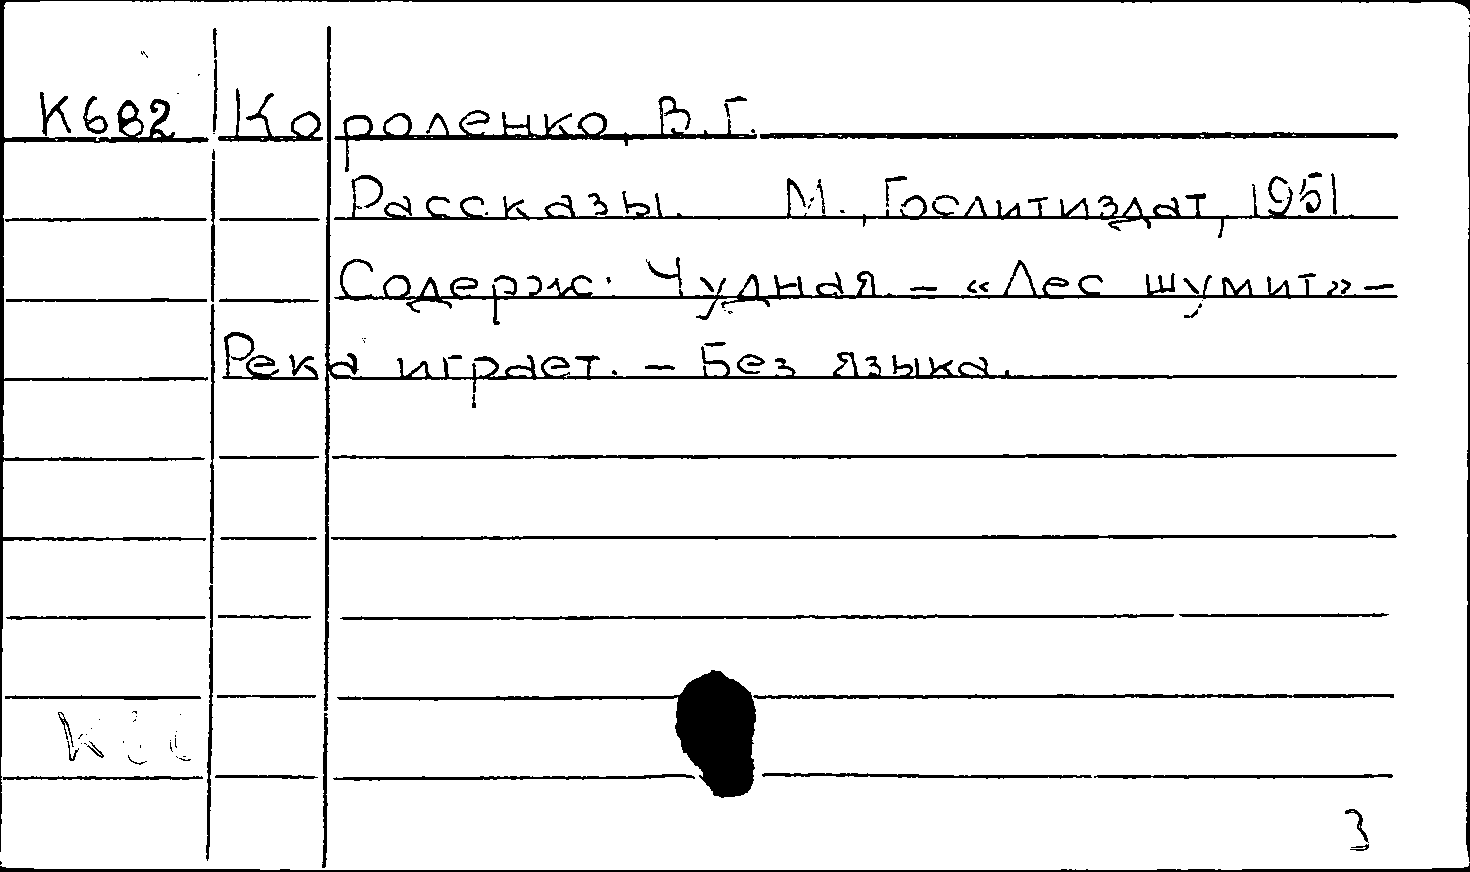 К682 Короленко, В.Г.
Рассказы. М., Гослитиздат, 1951
Содерж: Чудная. – «Лес шумит» –
Река играет. – Без языка.
3